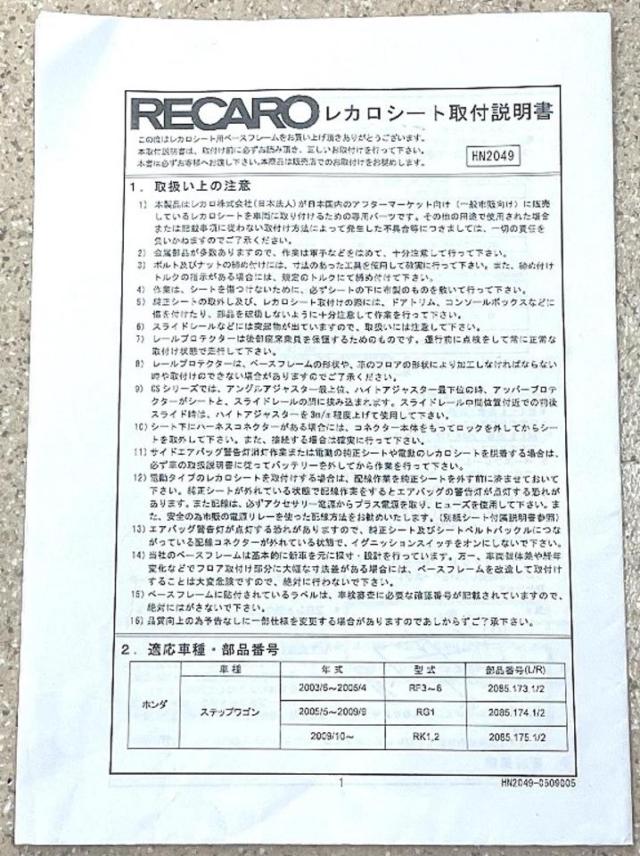 RECARO レカロシート取付説明書
この度はレカロシート用ベースフレームをお買い上げ頂きありがとうございます。
本取付説明書は、取付け前に必ずお読み頂き、正しいお取付けを行って下さい。
本書は必ずお客様へお渡し下さい。本商品は販売店でのお取付けをお奨めします。
HN2049
1. 取扱い上の注意
1) 本製品はレカロ株式会社(日本法人)が日本国内のアフターマーケット向け(一般市販向け)に販売
しているレカロシートを車両に取り付けるための専用パーツです。その他の用途で使用された場合
または記載事項に従わない取付け方法によって発生した不具合等につきましては、一切の責任を
負いかねますのでご了承ください。
2) 金属部品が多数ありますので、作業は軍手などをはめて、十分注意して行って下さい。
3) ボルト及びナットの締め付けには、寸法のあった工具を使用して確実に行って下さい。また、締め付け
トルクの指示がある場合には、規定のトルクにて締め付けて下さい。
4) 作業は、シートを傷つけないために、必ずシートの下に布製のものを敷いて行って下さい。
5) 純正シートの取外し及び、レカロシート取付けの際には、ドアトリム、コンソールボックスなどに
傷を付けたり、部品を破損しないように十分注意して作業を行って下さい。
6) スライドレールなどには突起物が出ていますので、取扱いには注意して下さい。
7) レールプロテクターは後部座席乗員を保護するためのものです。運行前に点検をして常に正常な
取付け状態で走行して下さい。
8) レールプロテクターは、ベースフレームの形状や、車のフロアの形状により加工しなければならない
時や取付けのできない場合がありますのでご了承ください。
9) GSシリーズでは、アングルアジャスター最上位、ハイトアジャスター最下位の時、アッパープロテ
クターがシートと、スライドレールの間に挟み込まれます。スライドレール中間位置付近での前後
スライド時は、ハイトアジャスターを3m/m程度上げて使用して下さい。
10) シート下にハーネスコネクターがある場合には、コネクター本体をもってロックを外してからシー
トを取外して下さい。また、接続する場合は確実に行って下さい。
11) サイドエアバッグ警告灯消灯作業または電動の純正シートや電動のレカロシートを脱着する場合は、
必ず車の取扱説明書に従ってバッテリーを外してから作業を行って下さい。
12) 電動タイプのレカロシートを取付けする場合は、配線作業を純正シートを外す前に済ませておいて
下さい。純正シートが外れている状態で配線作業をするとエアバッグの警告灯が点灯する恐れが
あります。また配線は、必ずアクセサリー電源からプラス電源を取り、ヒューズを使用して下さい。ま
た、安全の為市販の電源リレーを使った配線方法をお勧めいたします。(別紙シート付属説明書参照)
13) エアバッグ警告灯が点灯する恐れがありますので、純正シート及びシートベルトバックルにつな
がっている配線コネクターが外れている状態で、イグニッションスイッチをオンにしないで下さい。
14) 当社のベースフレームは基本的に新車を元に採寸・設計を行っています。万一、車両個体差や経年
変化などでフロア取付け部分に大幅な寸法差がある場合には、ベースフレームを改造して取付け
することは大変危険ですので、絶対に行わないで下さい。
15) ベースフレームに貼付されているラベルは、車検審査に必要な確認番号が記載されていますので、
絶対にはがさないで下さい。
16) 品質向上の為予告なしに一部仕様を変更する場合がありますのであしからずご了承下さい。
2. 適応車種・部品番号
車種 年式 型式 部品番号(L/R)
ホンダ ステップワゴン 2003/6~2005/4 RF3~8 2085.173.1/2
2005/5~2009/9 RG1 2085.174.1/2
2009/10~ RK1,2 2085.175.1/2
1
HN2049-0509005